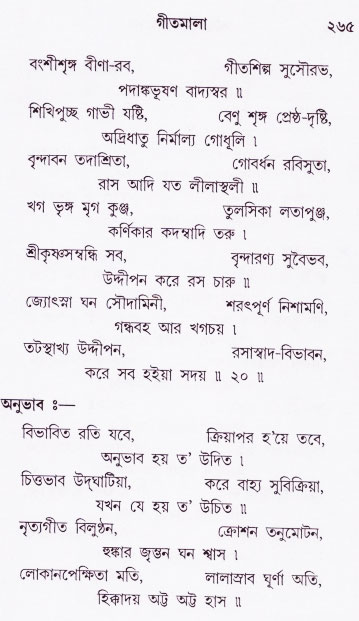 গীতমালা ২৬৫
বংশীশৃঙ্গ বীণা-রব, গীতশিল্প সুসৌরভ,
পদাঙ্কভূষণ বাদ্যস্বর ॥
শিখিপুচ্ছ গাভী যষ্টি, বেণু শৃঙ্গ প্রেষ্ঠ-দৃষ্টি,
অদ্রিধাতু নির্মাল্য গোধূলি ।
বৃন্দাবন তদাশ্রিতা, গোবর্ধন রবিসুতা,
রাস আদি যত লীলাস্থলী ॥
খগ ভৃঙ্গ মৃগ কুঞ্জ, তুলসিকা লতাপুঞ্জ,
কর্ণিকার কদম্বাদি তরু ।
শ্রীকৃষ্ণসম্বন্ধি সব, বৃন্দারণ্য সুবৈভব,
উদ্দীপন করে রস চারু ॥
জ্যোৎস্না ঘন সৌদামিনী, শরৎপূর্ণ নিশামণি,
গন্ধবহ আর খগচয় ।
তটস্থাখ্য উদ্দীপন, রসাস্বাদ-বিভাবন,
করে সব হইয়া সদয় ॥ ২০ ॥
অনুভাব ঃ—
বিভাবিত রতি যবে, ক্রিয়াপর হ’য়ে তবে,
অনুভাব হয় ত’ উদিত ।
চিত্তভাব উদ্ঘাটিয়া, করে বাহ্য সুবিক্রিয়া,
যখন যে হয় ত’ উচিত ॥
নৃত্যগীত বিলুণ্ঠন, ক্রোশন তনুমোটন,
হুঙ্কার জৃম্ভন ঘন শ্বাস ।
লোকানপেক্ষিতা মতি, লালাস্রাব ঘূর্ণা অতি,
হিক্কাদয় অট্ট অট্ট হাস ॥